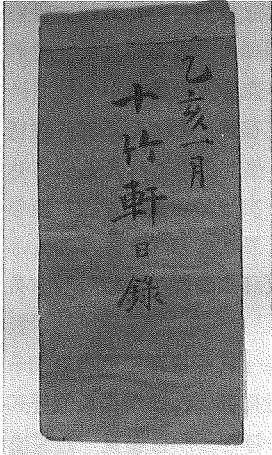 乙亥一月
十竹軒日錄